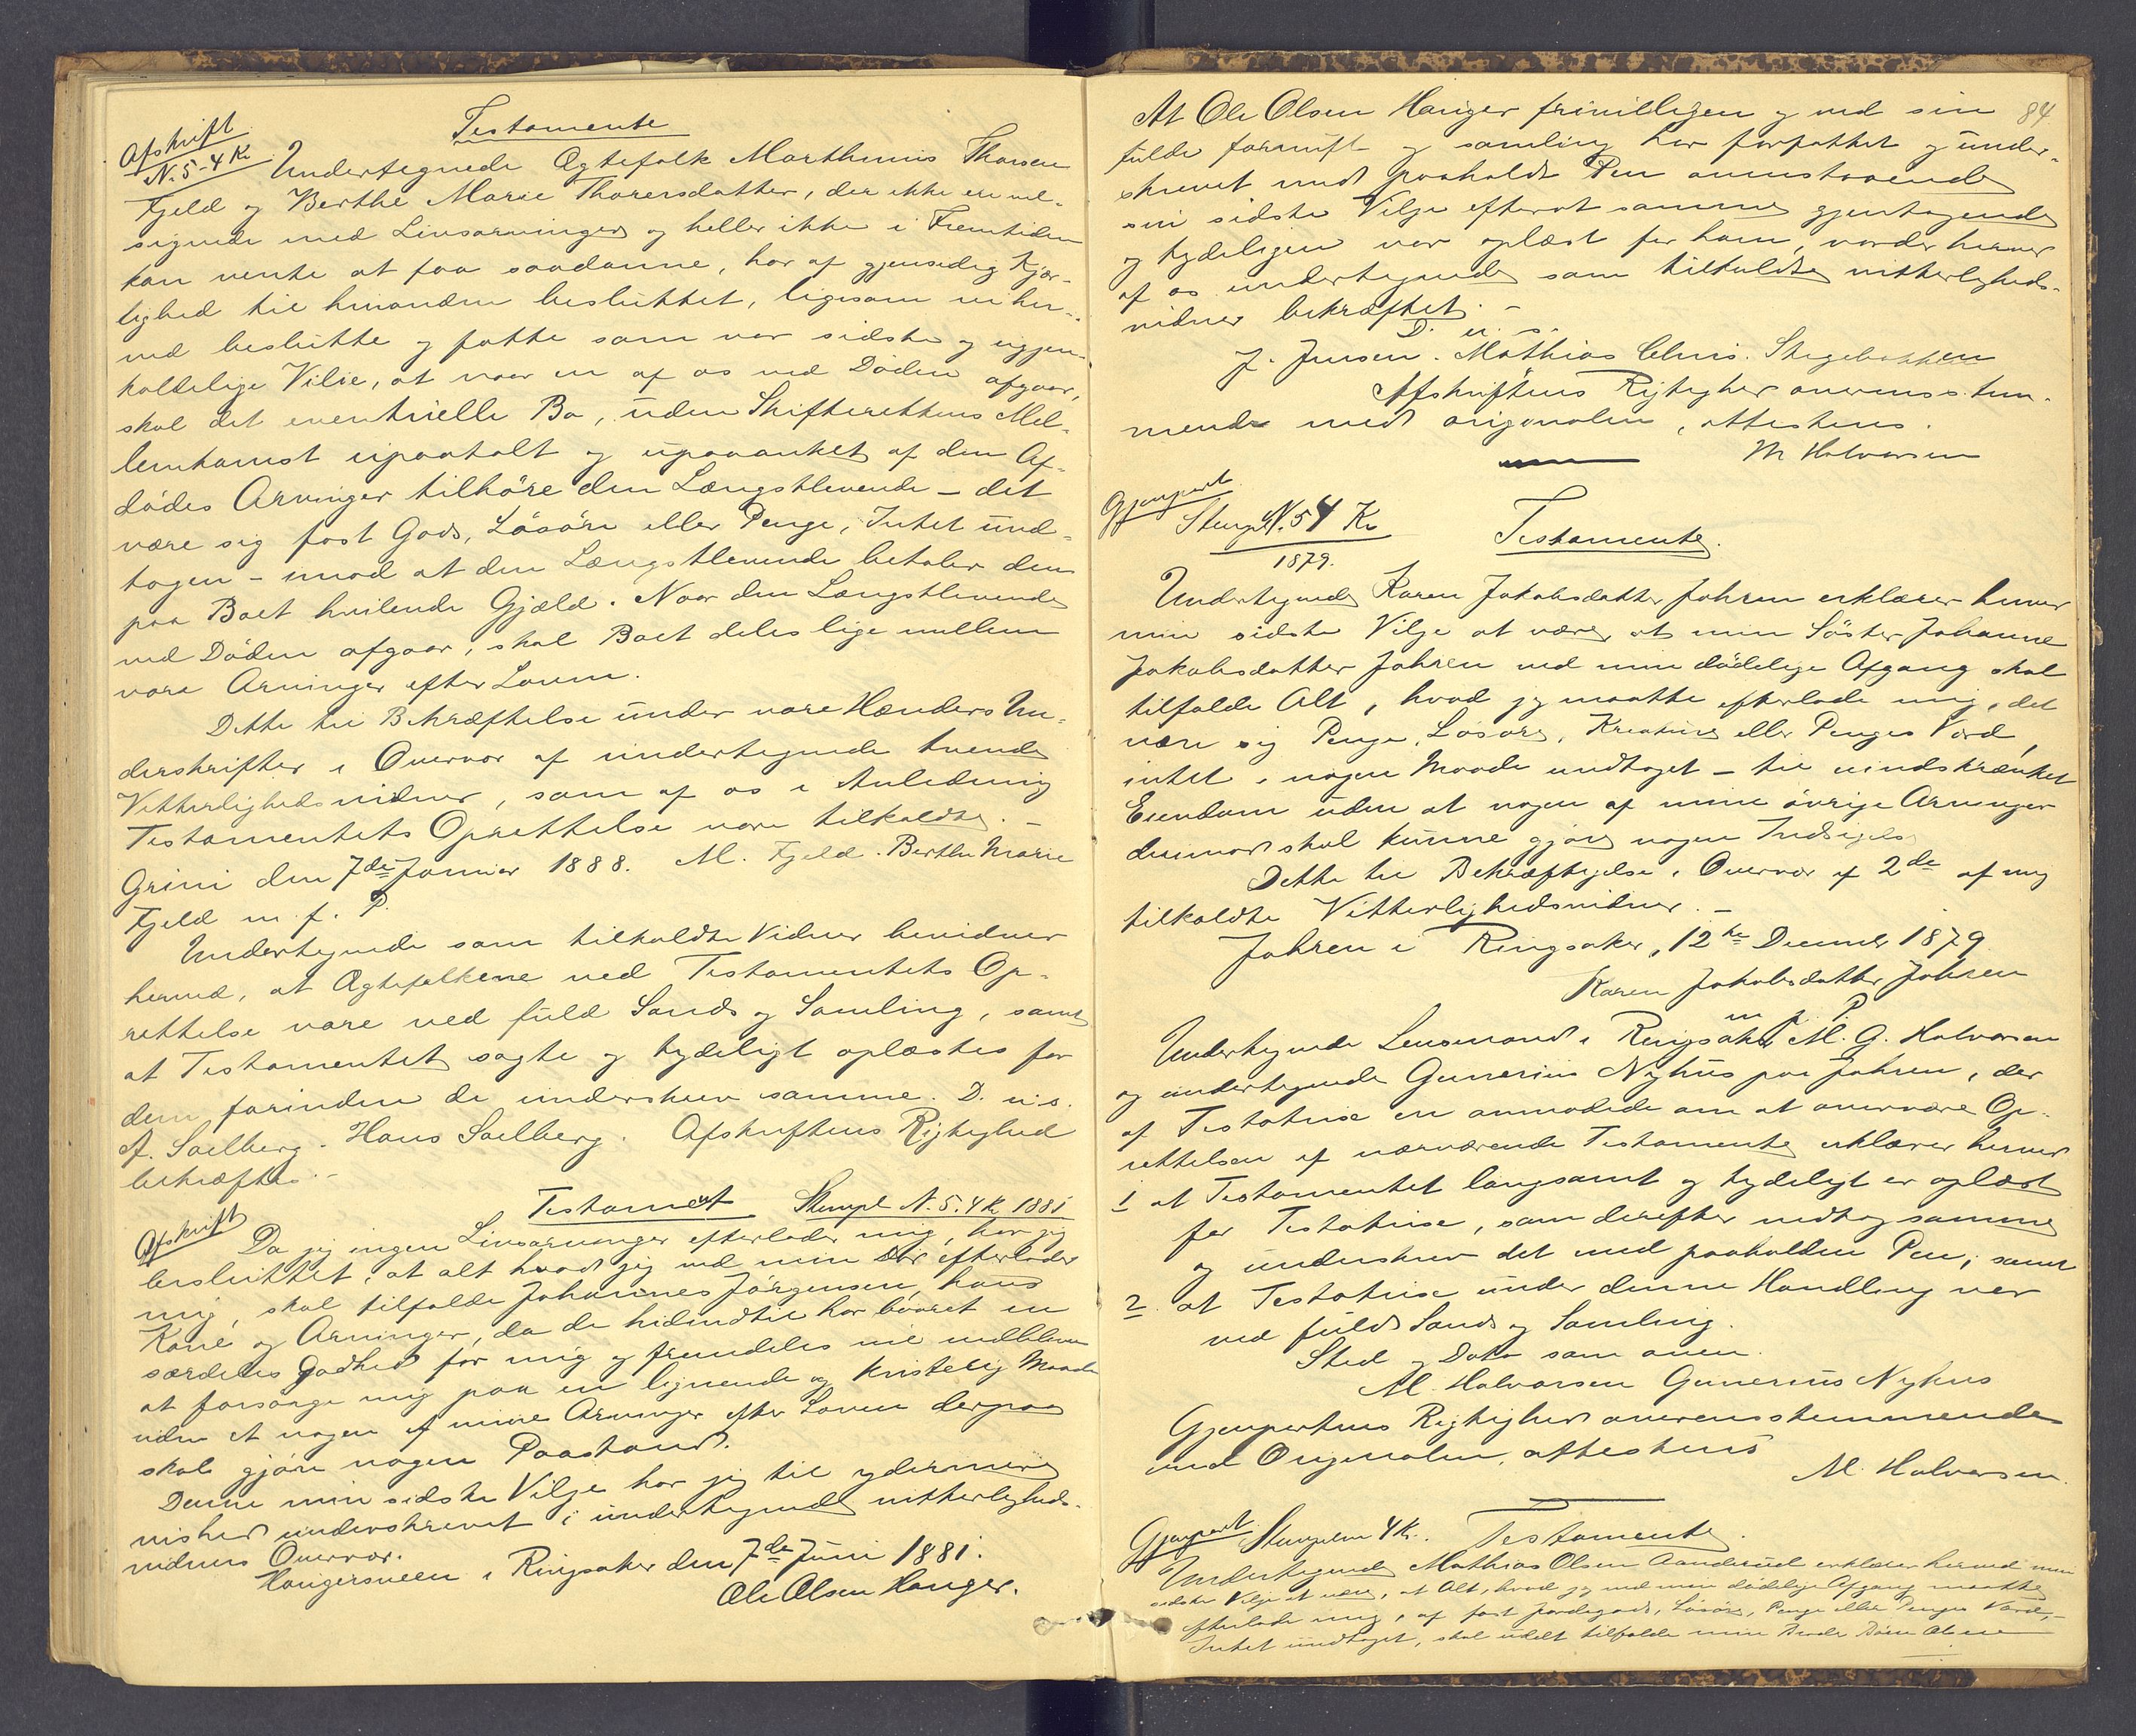 Testamente
Afskrift
N. 5 - 4 Kr
Undertegnede Ægtefolk Marthinius Thorsen
Fjeld og Berthe Marie Thorersdatter, der ikke ere vel-
signede med Livsarvinger og heller ikke i Fremtiden
kan vente at faa saadanne, har af gjensidig Kjær-
lighed til hinanden besluttet, ligesom vi her-
ved beslutte og fatte som vor sidste og ugjen-
kaldelige Vilie, at naar en af os ved Døden afgaar,
skal det eventuelle Bo, uden Skifterettens Mel-
lemkomst upaatalt og upaaanket af den Af-
dødes Arvinger tilhøre den Længstlevende – det
være sig fast Gods, Løsøre eller Penge, Intet und-
tagen – imod at den Længstlevende betaler den
paa Boet hvilende Gjæld. Naar den Længstlevende
ved Døden afgaar, skal Boet deles lige mellem
vore Arvinger efter Loven.
Dette til Bekræftelse under vore Hænders Un-
derskrifter i Overvær af undertegnede tvende
Vitterlighedsvidner, som af os i Anledning
Testamentets Oprettelse vare tilkaldte. –
Grini den 7de Januar 1888. M. Fjeld. Berthe Marie
Fjeld m. f. P.
Undertegnede som tilkaldte Vidner bevidner
herved, at Ægtefolkene ved Testamentets Op-
rettelse vare ved fuld Sands og Samling, samt
at Testamentet sagte og tydeligt oplæstes for
dem, forinden de underskrev samme. D. u. s.
A. Saelberg. Hans Saelberg. Afskriftens Rigtighed
bekræftes. –
Testament Stempl N. 5. 4 Kr 1881
Afskrift
Da jeg ingen Livsarvinger efterlader mig, har jeg
besluttet, at alt hvad jeg ved min Død efterlader
mig, skal tilfalde Johannes Jörgensen, hans
Kone og Arvinger, da de hidindtil har baaret en
særdeles Godhed for mig og fremdeles vil vedblive
at forsørge mig paa en lignende og kristelig Maade
uden at nogen af mine Arvinger efter Loven derpaa
skal gjøre nogen Paastand.
Denne min sidste Vilje har jeg til ydermere
vished underskrevet i undertegnede vitterligheds-
vidners Overvær.
Haugersveen i Ringsaker den 7de Juni 1881.
Ole Olsen Hauger.
84
At Ole Olsen Hauger frivilligen og ved sin
fulde fornuft og samling har forfattet og under-
skrevet med paaholdt Pen ovenstaaende
sin sidste Vilje efterat samme gjentagende
og tydeligen var oplæst for ham, vorder herved
af os undertegnede som tilkaldte vitterligheds-
vidner bekræftet. –
D. u. s.
J. Jensen. Mathias Chris. Stagebakken
Afskriftens Rigtighed overensstem-
mende med originalen, attesteres.
M Halvorsen
Gjenpart
Stempl N. 5 4 Kr
1879.
Testamente.
Undertegnede Karen Jakobsdatter Jahren erklærer herved
min sidste Vilje at være, at min Søster Johanne
Jakobsdatter Jahren ved min dødelige Afgang skal
tilfalde Alt, hvad jeg maatte efterlade mig, det
være sig Penge, Løsøre, Kreature eller Penges Værd,
intet i nogen Maade undtaget – til uindskrænket
Eiendom uden at nogen af mine øvrige Arvinger
derimod skal kunne gjøre nogen Indsigelse
Dette til Bekræftigelse i Overvær af 2de af mig
tilkaldte Vitterlighedsvidner. –
Jahren i Ringsaker, 12te Decemb. 1879
Karen Jakobsdatter Jahren
m p. P
Undertegnede Lensmand i Ringsaker M. G. Halvorsen
og undertegnede Gunerius Nyhus paa Jahren, der
af Testatrise er anmodede om at overvære Op-
rettelsen af nærværende Testamente erklærer herved
1 at Testamentet langsomt og tydeligt er oplæst
for Testatrise, som derefter vedtog samme
og underskrev det med paaholden Pen, samt
2. at Testatrise under denne Handling var
ved fuld Sands og Samling.
Sted og Dato som oven.
M. Halvorsen Gunerius Nyhus
Gjenpartens Rigtighed overensstemmende
med Originalen, attesteres
M. Halvorsen.
Gjenpart Stempelm 4 Kr. Testamente.
Undertegnede Mathias Olsen Aanderud erklærer herved min
sidste Vilje at være, at Alt, hvad jeg ved min dødelige Afgang maatte
efterlade mig, af fast Jordegods, Løsøre, Penge eller Penges Værd, –
Intet undtaget, skal udelt tilfalde min Broder Olsen